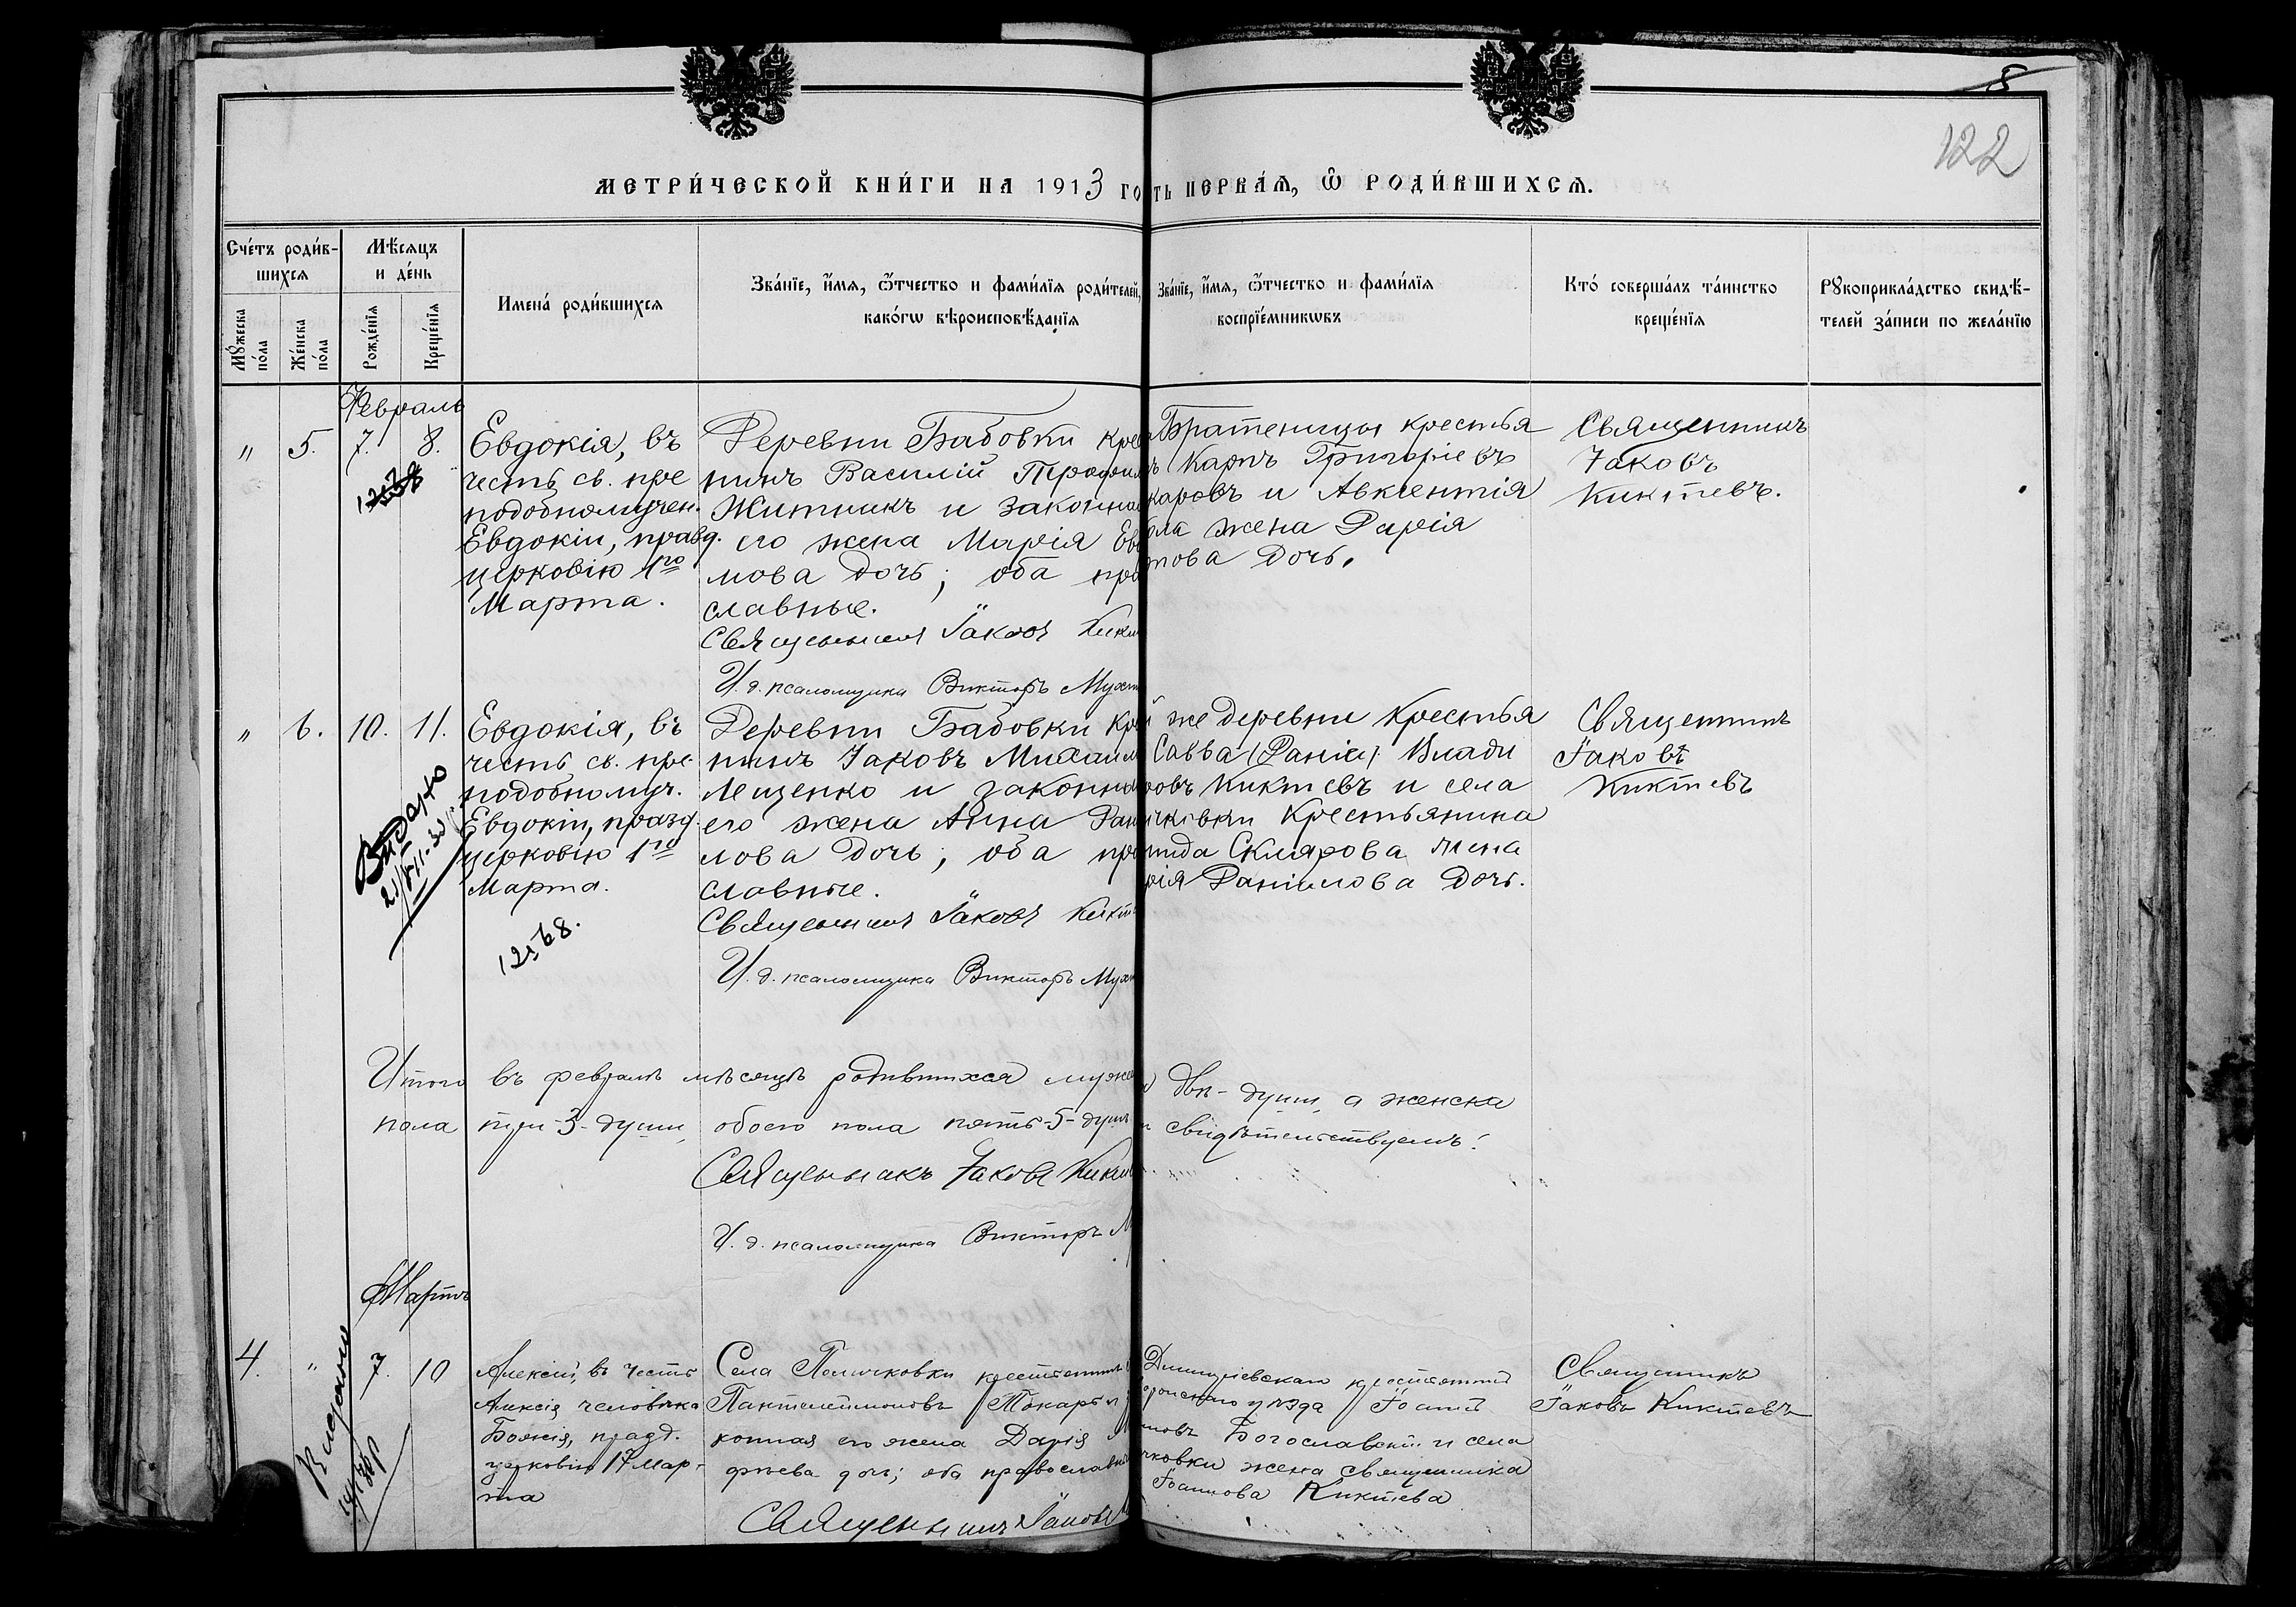 5
122
МЕТРИ́ЧЕСКОЙ КНИ́ГИ НА 1913 ГО
ТЬ ПЕРВА́Ѧ, Ѽ РОДИ́ВШИХСѦ.
Сче́тъ роди́в-
шихсѧ
Мꙋ́жеска
по́ла
Же́нска
по́ла
Мѣ́сѧцъ
и де́нь
Рожде́нїѧ
Креще́нїѧ
Имена̀ роди́вшихсѧ
Зва́нїе, и҆́мѧ, ѻ҆́тчество и фами́лїѧ роди́телей,
како́гѡ вѣроисповѣ́данїѧ
Зва́нїе, и҆́мѧ, ѻ҆́тчество и фами́лїѧ
воспрїе́мникѡвъ
Кто́ соверша́лъ та́инство
креще́нїѧ
Рꙋкоприкла́дство свидѣ́-
телей за́писи по жела́нїю
Февраль
" 5. 7. 8.
Евдокія, въ
честь св. пре
подобномучен.
Евдокіи, празд.
церковію 1го
Марта.
Деревни Бабовки кре
нинъ Василій
Житникъ и законна
его жена Марія Ев
мова дочь; оба пра
славные.
Священникъ Іаковъ Кикт
И. д. псаломщика Викторъ
Братеницы крестья
Карпъ Григоріевъ
каровъ и Авксентія
жена Дарія
това дочь.
Священникъ
Іаковъ
Киктевъ.
" 6. 10. 11.
Евдокія, въ
честь св. пре-
подобномуч.
Евдокіи, празд.
церковію 1го
Марта.
12568.
Видано
Деревни Бабовки кре
нинъ Іаковъ Михаил
Лещенко и законна
его жена Анна Дан
лова дочь; оба пра
славные.
Священникъ Іаковъ Кикт
И. д. псаломщика Викторъ
же деревни крестья
Савва (Даніи) Влади
ровъ Киктевъ и села
чковки крестьянина
мида Склярова жена
рія Даніилова дочь.
Священникъ
Іаковъ
Киктевъ
Итого въ февралѣ мѣсяцѣ родившихся мужес
двѣ - души, а женска
пола три -3- души, обоего пола пять -5- душъ
свидѣтельствуемъ:
Священникъ Іаковъ Кикте
И. д. псаломщика Викторъ М
Мартъ
4. " 7. 10
Видано
Алексій, въ честь
Алексія человѣка
Божія, празд.
церковію 17 Мар-
та
Села Поличковки крестьянинъ
Пантелеимоновъ Токарь и
конная его жена Дарія
фѣева дочь; оба православн
Священникъ Іаковъ
Димитріевскаго крестьянинъ
уѣзда Іоаннъ
новъ Богославскій и села
чковки жена священника
Іоаннова Киктева
Священникъ
Іаковъ Киктевъ